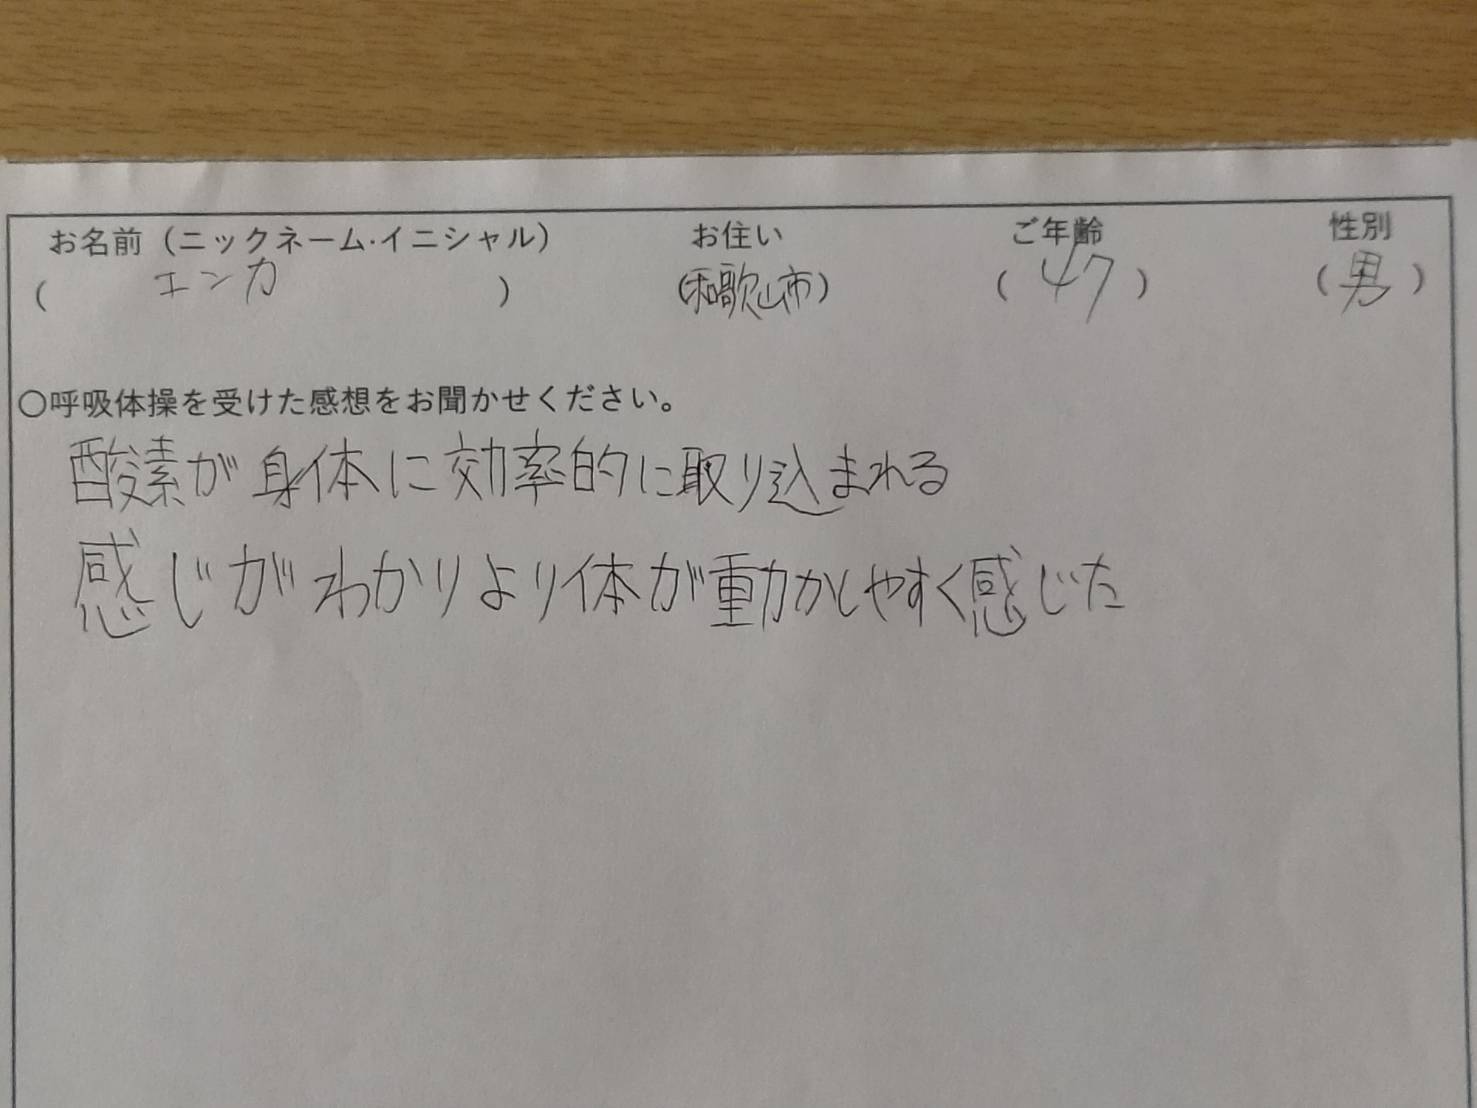 お名前（ニックネーム・イニシャル） お住い ご年齢 性別
（ エンカ ） （和歌山市） （ 47 ） （男）
〇呼吸体操を受けた感想をお聞かせください。
酸素が身体に効率的に取り込まれる
感じがわかりより体が動かしやすく感じた